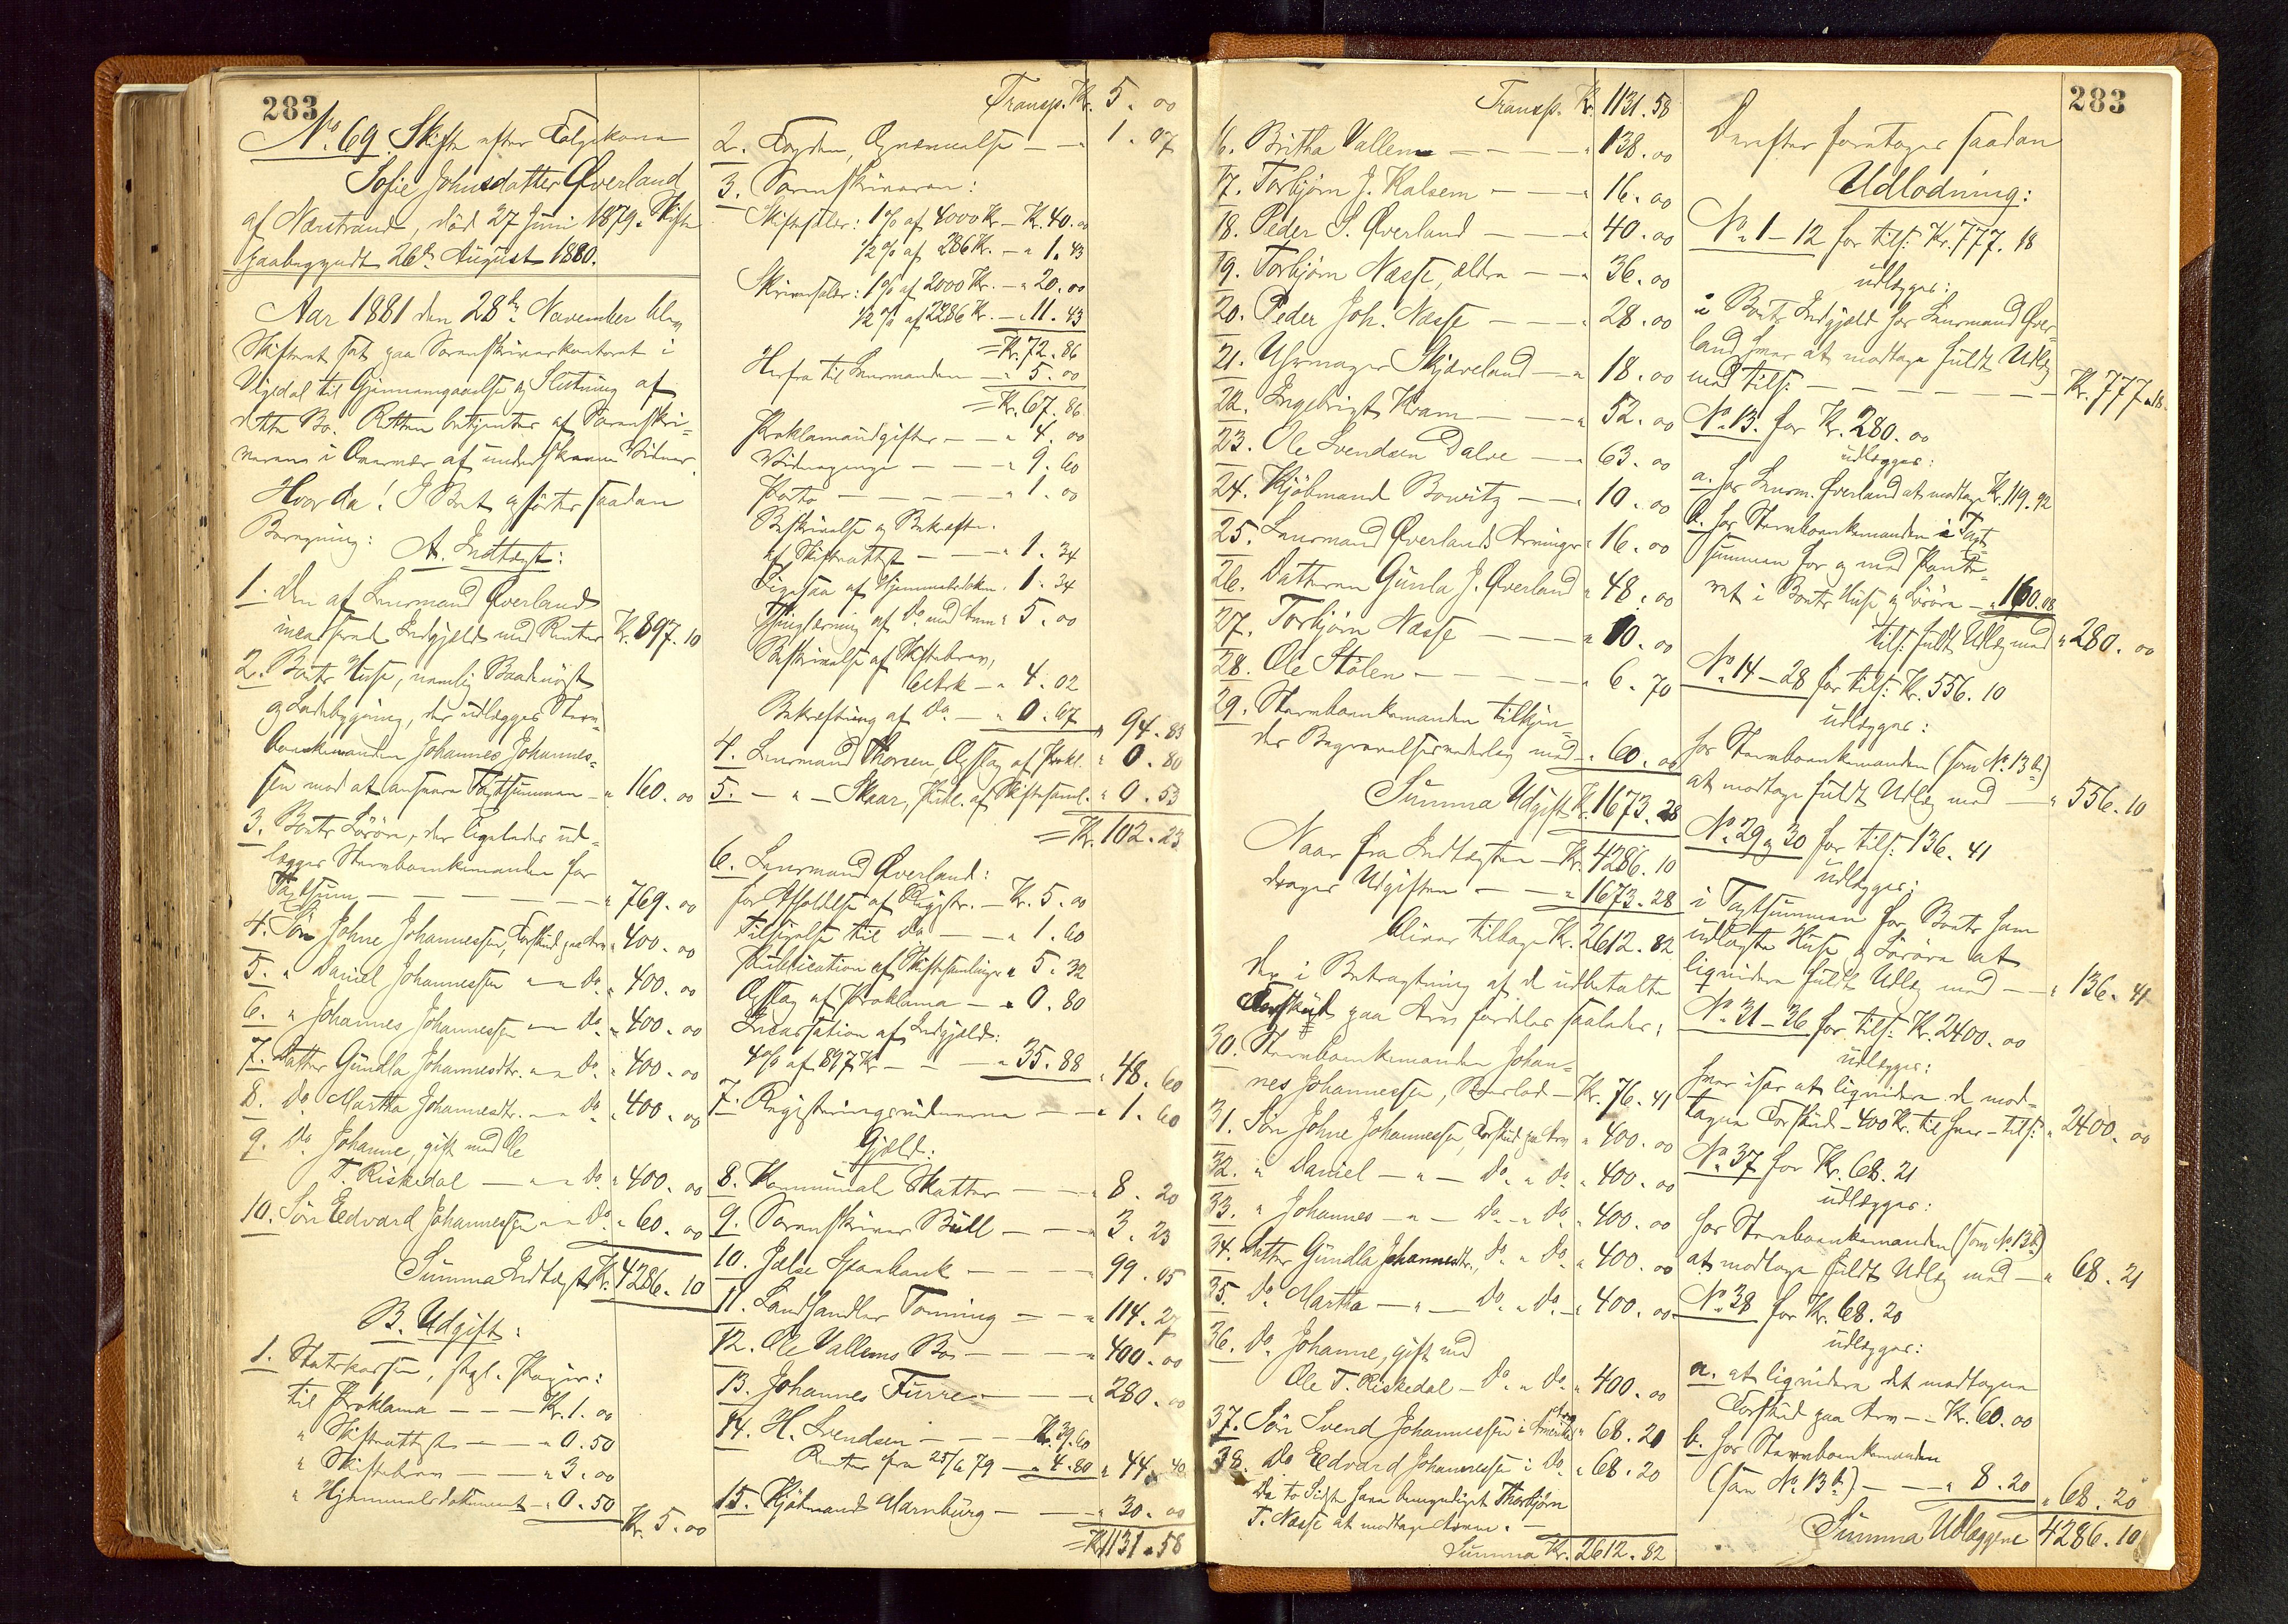 283
No. 69. Skifte efter Følgekone
Sofie Johnsdatter Øverland
af Nærstrand, död 27 Juni 1879. Skifte
paabegyndt 26de August 1880.
Aar 1881 den 28de November blev
Skifteret sat paa Sorenskriverkontoret i
Vigedal til Gjennemgaaelse og Slutning af
dette Bo. Retten betjentes af Sorenskri-
veren i Overvær af underskrevne Vidner.
Hvorda! I Boet opførtes saadan
Beregning:
A. Indtægt:
1. Den af Lensmand Øverland
incasserede Indgjæld med Renter Kr. 897. 10
2. Boets Huse, nemlig Baadnöst
og Ladebygning, der udlægges Sterv-
boenkemanden Johannes Johannes-
sen mod at ansvare Taxtsummen - " 160. 00
3. Boets Lösöre, der ligeledes ud-
lægges Stervboenkemanden for
Taxtsum — — — — — " 769. 00
4. Sön Johne Johannessen, Forskud paa Arv " 400. 00
5. " Daniel Johannessen " " Do. " 400. 00
6. " Johannes Johannessen " — Do. " 400. 00
7. Datter Gundla Johannesdtr. " " Do. " 400. 00
8. Do. Martha Johannesdtr. " — Do. " 400. 00
9. Do. Johanne, gift med Ole
T. Riskedal — " " Do. " 400. 00
10. Sön Edvard Johannessen " " Do. " 60. 00
Summa Indtægt Kr. 4286. 10
B. Udgift:
1. Statskassen, stpl. Papir:
til Proklama — — — Kr. 1. 00
" Skifteattest — — " 0. 50
" Skiftebrev — — " 3. 00
" Hjemmelsdokument — " 0. 50
Kr. 5. 00
Transp. Kr. 5. 00
2. Fogden, Opnævnelse — — " 1. 07
3. Sorenskriveren:
Skiftesaler: 1% af 4000 Kr - Kr. 40. 00
1/2% af 286 Kr. - " 1. 43
Skriversaler: 1% af 2000 Kr. - " 20. 00
1/2% af 2286 Kr. - " 11. 43
= Kr. 72. 86
Herfra til Lensmanden — " 5. 00
= Kr. 67. 86
Proklamaudgifter — — " 4. 00
Vidnepenge — — — " 9. 60
Porto — — — — — " 1. 00
Beskrivelse og Bekræftn.
af Skifteattest — — — " 1. 34
Ligesaa af Hjemmelsdokm. 1. 34
Thinglæsning af Do. med Anm " 5. 00
Beskrivelse af Skiftebrev,
6 Ark — " 4. 02
Bekræftning af Do. — " 0. 67 " 94. 83
4. Lensmand Thorsen, Opslag af Prokl. " 0. 80
5. — " — Skaar, Publ. af Skiftesaml. " 0. 53
= Kr. 102. 23
6. Lensmand Øverland:
for Afholdelse af Registr. — Kr. 5. 00
Tilsigelse til Do — — " 1. 60
Publication af Skiftesamlinger " 5. 32
Opslag af Proklama — " 0. 80
Incassation af Indgjæld:
4% af 897 Kr — — — " 35. 88 " 48. 60
7. Registreringsvidnerne — — " 1. 60
Gjæld:
8. Kommunale Skatter — — " 8. 20
9. Sorenskriver Bull — — " 3. 23
10. Jelse Sparebank — — — " 99. 05
11. Landhandler Tonning — — " 114. 27
12. Ole Vallems Bo — — — " 400. 00
13. Johannes Furre — — — " 280. 00
14. H. Svendsen — — — Kr. 39. 60
Renter fra 25/6 79 — " 4. 80 " 44. 40
15. Kjöbmand Marnburg — — " 30. 00
= Kr 1131. 58
Transp. Kr. 1131. 58
16. Britha Vallem — — — — " 138. 00
17. Torbjörn J. Kalsem — — — " 16. 00
18. Peder S. Øverland — — — " 40. 00
19. Torbjörn Næsse, ældre — — " 36. 00
20. Peder Joh. Næsse — — — " 28. 00
21. Uhrmager Skjæveland — — " 18. 00
22. Ingebrigt Kvam — — — " 52. 00
23. Ole Svendsen Dalve — — " 63. 00
24. Kjöbmand Bowitz — — " 10. 00
25. Lensmand Øverlands Arvinger " 16. 00
26. Datteren Gunla J. Øverland " 48. 00
27. Torbjörn Næsse — — — " 10. 00
28. Ole Stölen — — — — " 6. 70
29. Stervboenkemanden tilkjen-
des Begravelsesvederlag med — " 60. 00
Summa Udgift Kr. 1673. 28
Naar fra Indtægten — Kr. 4286. 10
drages Udgiften — — " 1673. 28
bliver tilbage Kr. 2612. 82
der i Betragtning af de udbetalte
Forskud paa Arv fordeles saaledes:
30. Stervboenkemanden Johan-
nes Johannessen, Boeslod — Kr. 76. 41
31. Sön Johne Johannessen, Forskud paa Arv " 400. 00
32. " Daniel — " — Do. " Do. " 400. 00
33. " Johannes — " — Do. " Do. " 400. 00
34. Datter Gundla Johannesdtr., Do. " Do. " 400. 00
35. Do. Martha — " — Do. " Do. " 400. 00
36. Do. Johanne, gift med
Ole T. Riskedal — Do. " Do. " 400. 00
37. Sön Svend Johannessen i Amerika, Arv " 68. 21
38. Do Edvard Johannessen i Do. " 68. 20
De to Sidste have bemyndiget Thorbjörn
T. Næsse at modtage Arven. —
Summa Kr. 2612. 82
283
Derefter foretoges saadan
Udlodning:
No. 1 – 12 for tils: Kr. 777. 18
udlægges:
i Boets Indgjæld hos Lensmand Øver-
land hver at modtage fuldt Udlæg
med tils: — — — — — — Kr. 777. 18
No. 13. for Kr. 280. 00
udlægges:
a. hos Lensm. Øverland at modtage Kr. 119. 92
b. hos Stervboenkemanden i Taxt-
summen for og med Pante-
ret i Boets Huse og Lösöre — " 160. 08
tils: fuldt Udlæg med " 280. 00
No. 14 – 28 for tils: Kr. 556. 10
udlægges:
hos Stervboenkemanden (som No. 13 b.)
at modtage fuldt Udlæg med — " 556. 10
No. 29 og 30 for tils: 136. 41
udlægges:
i Taxtsummen for Boets ham
udlagte Huse og Lösöre at
liqvidere fuldt Udlæg med — — " 136. 41
No. 31 – 36 for tils: Kr. 2400. 00
udlægges:
hver især at liqvidere de mod-
tagne Forskud - 400 Kr. til hver - tils: " 2400. 00
No. 37 for Kr. 68. 21
udlægges:
hos Stervboenkemanden (som No. 13 b.)
at modtage fuldt Udlæg med — " 68. 21
No. 38 for Kr. 68. 20
udlægges:
a. at liqvidere det modtagne
Forskud paa Arv — Kr. 60. 00
b. hos Stervboenkemanden
(som No. 13 b.) — — " 8. 20 " 68. 20
Summa Udlæggene 4286. 10